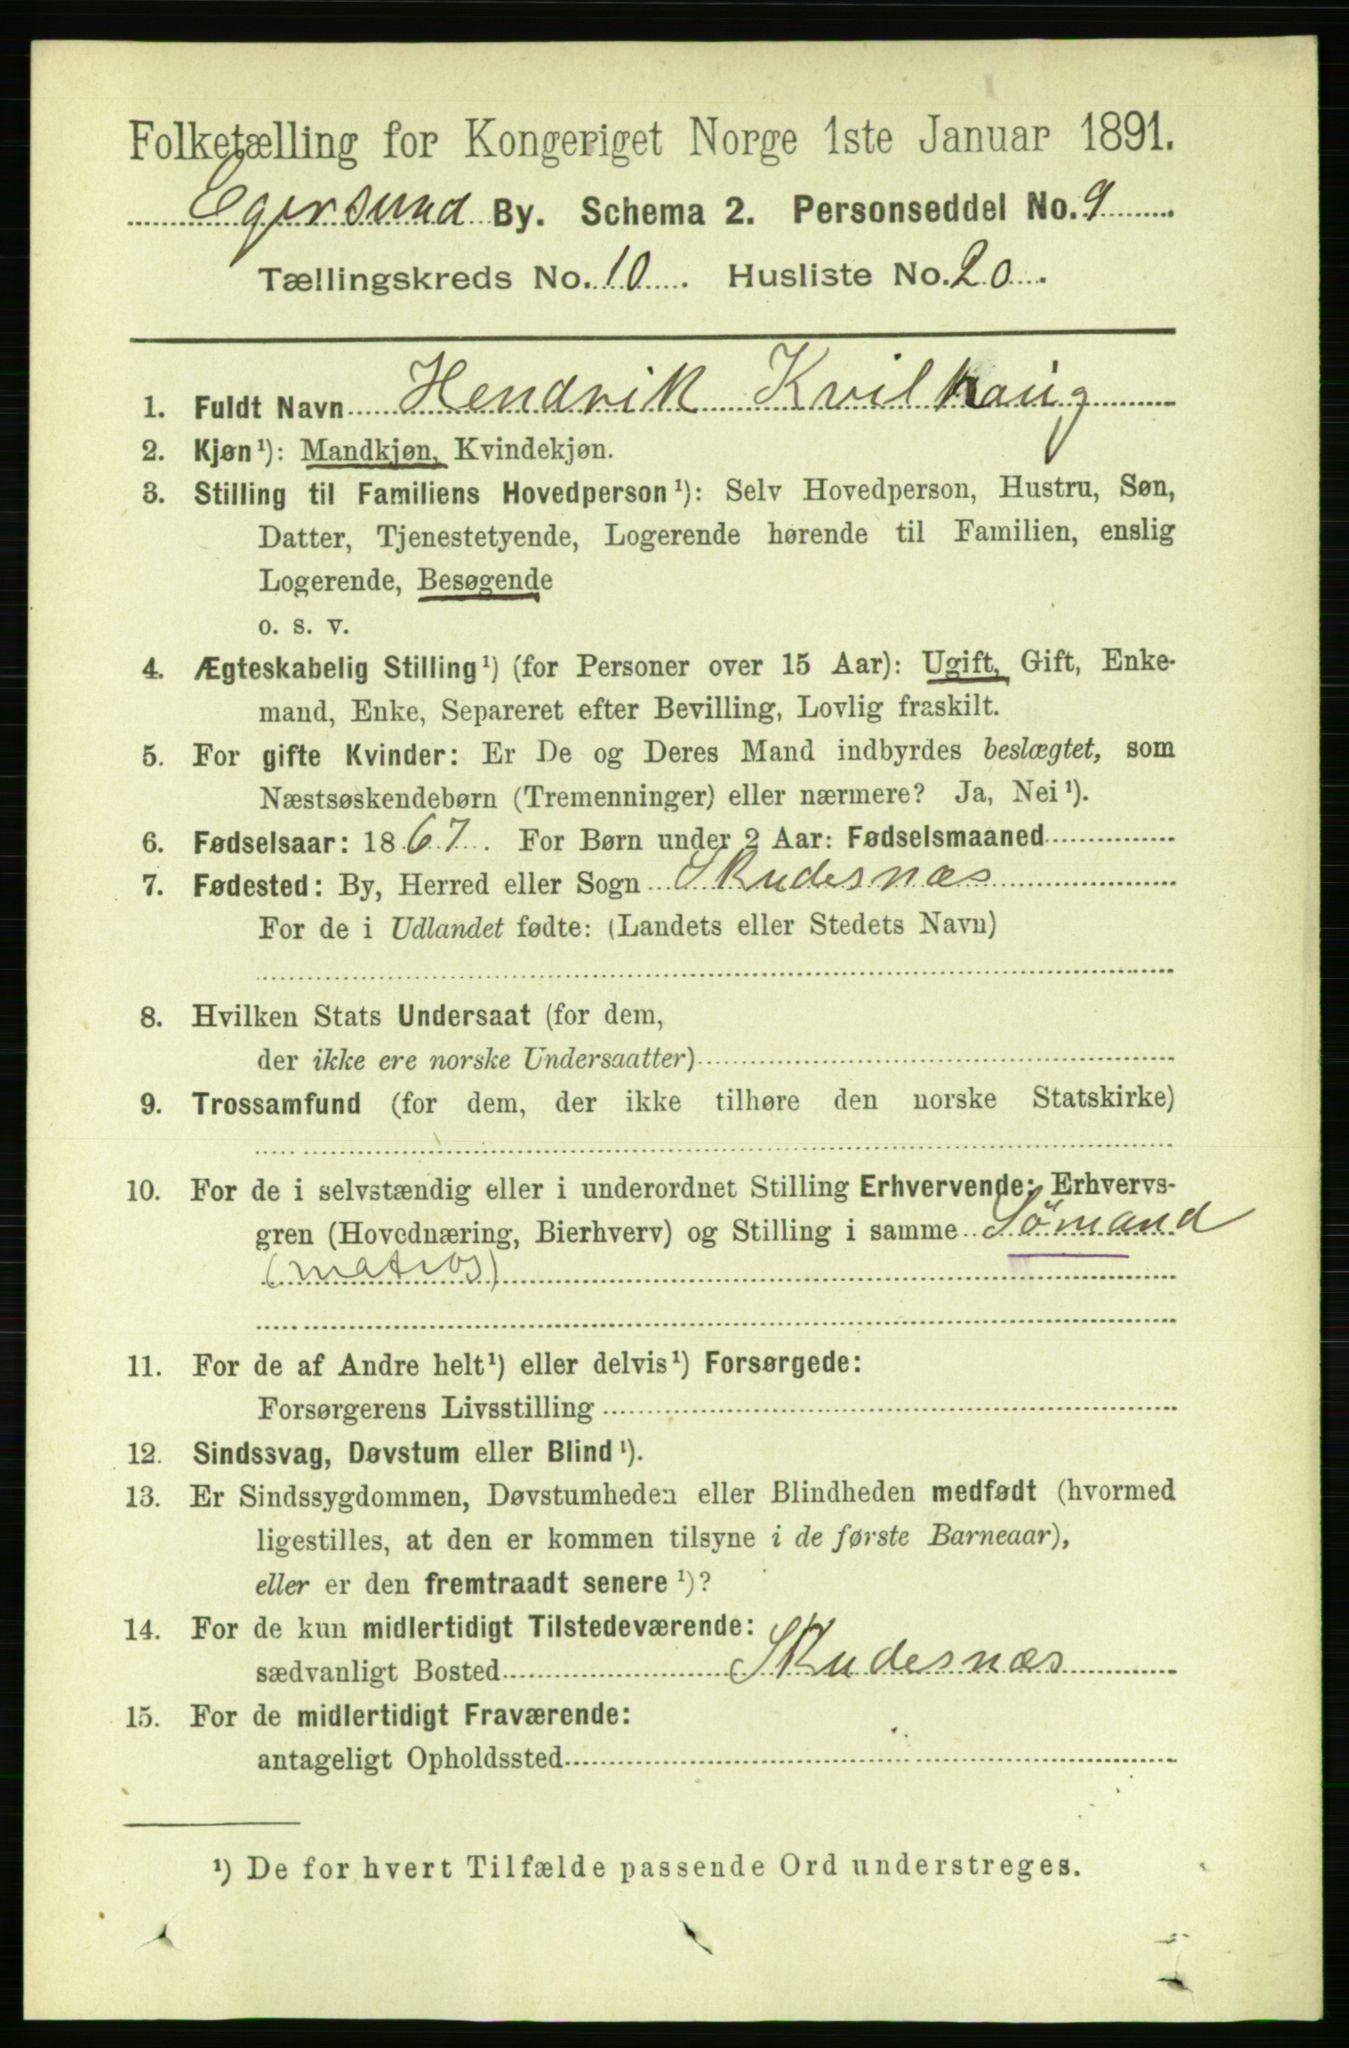 Folketælling for Kongeriget Norge 1ste Januar 1891.
Egersund By. Schema 2. Personseddel No. 9
Tællingskreds No. 10. Husliste No. 20.
1. Fuldt Navn Hendrik Kvilhaug
2. Kjøn¹): Mandkjøn, Kvindekjøn.
3. Stilling til Familiens Hovedperson¹): Selv Hovedperson, Hustru, Søn,
Datter, Tjenestetyende, Logerende hørende til Familien, enslig
Logerende, Besøgende
o. s. v.
4. Ægteskabelig Stilling¹) (for Personer over 15 Aar): Ugift, Gift, Enke-
mand, Enke, Separeret efter Bevilling, Lovlig fraskilt.
5. For gifte Kvinder: Er De og Deres Mand indbyrdes beslægtet, som
Næstsøskendebørn (Tremenninger) eller nærmere? Ja, Nei¹).
6. Fødselsaar: 1867. For Børn under 2 Aar: Fødselsmaaned
7. Fødested: By, Herred eller Sogn Skudesnæs
For de i Udlandet fødte: (Landets eller Stedets Navn)
8. Hvilken Stats Undersaat (for dem,
der ikke ere norske Undersaatter)
9. Trossamfund (for dem, der ikke tilhøre den norske Statskirke)
10. For de i selvstændig eller i underordnet Stilling Erhvervende: Erhvervs-
gren (Hovednæring, Bierhverv) og Stilling i samme Sømand
(matros)
11. For de af Andre helt¹) eller delvis¹) Forsørgede:
Forsørgerens Livsstilling
12. Sindssvag, Døvstum eller Blind¹).
13. Er Sindssygdommen, Døvstumheden eller Blindheden medfødt (hvormed
ligestilles, at den er kommen tilsyne i de første Barneaar),
eller er den fremtraadt senere¹)?
14. For de kun midlertidigt Tilstedeværende:
sædvanligt Bosted Skudesnæs
15. For de midlertidigt Fraværende:
antageligt Opholdssted
¹) De for hvert Tilfælde passende Ord understreges.